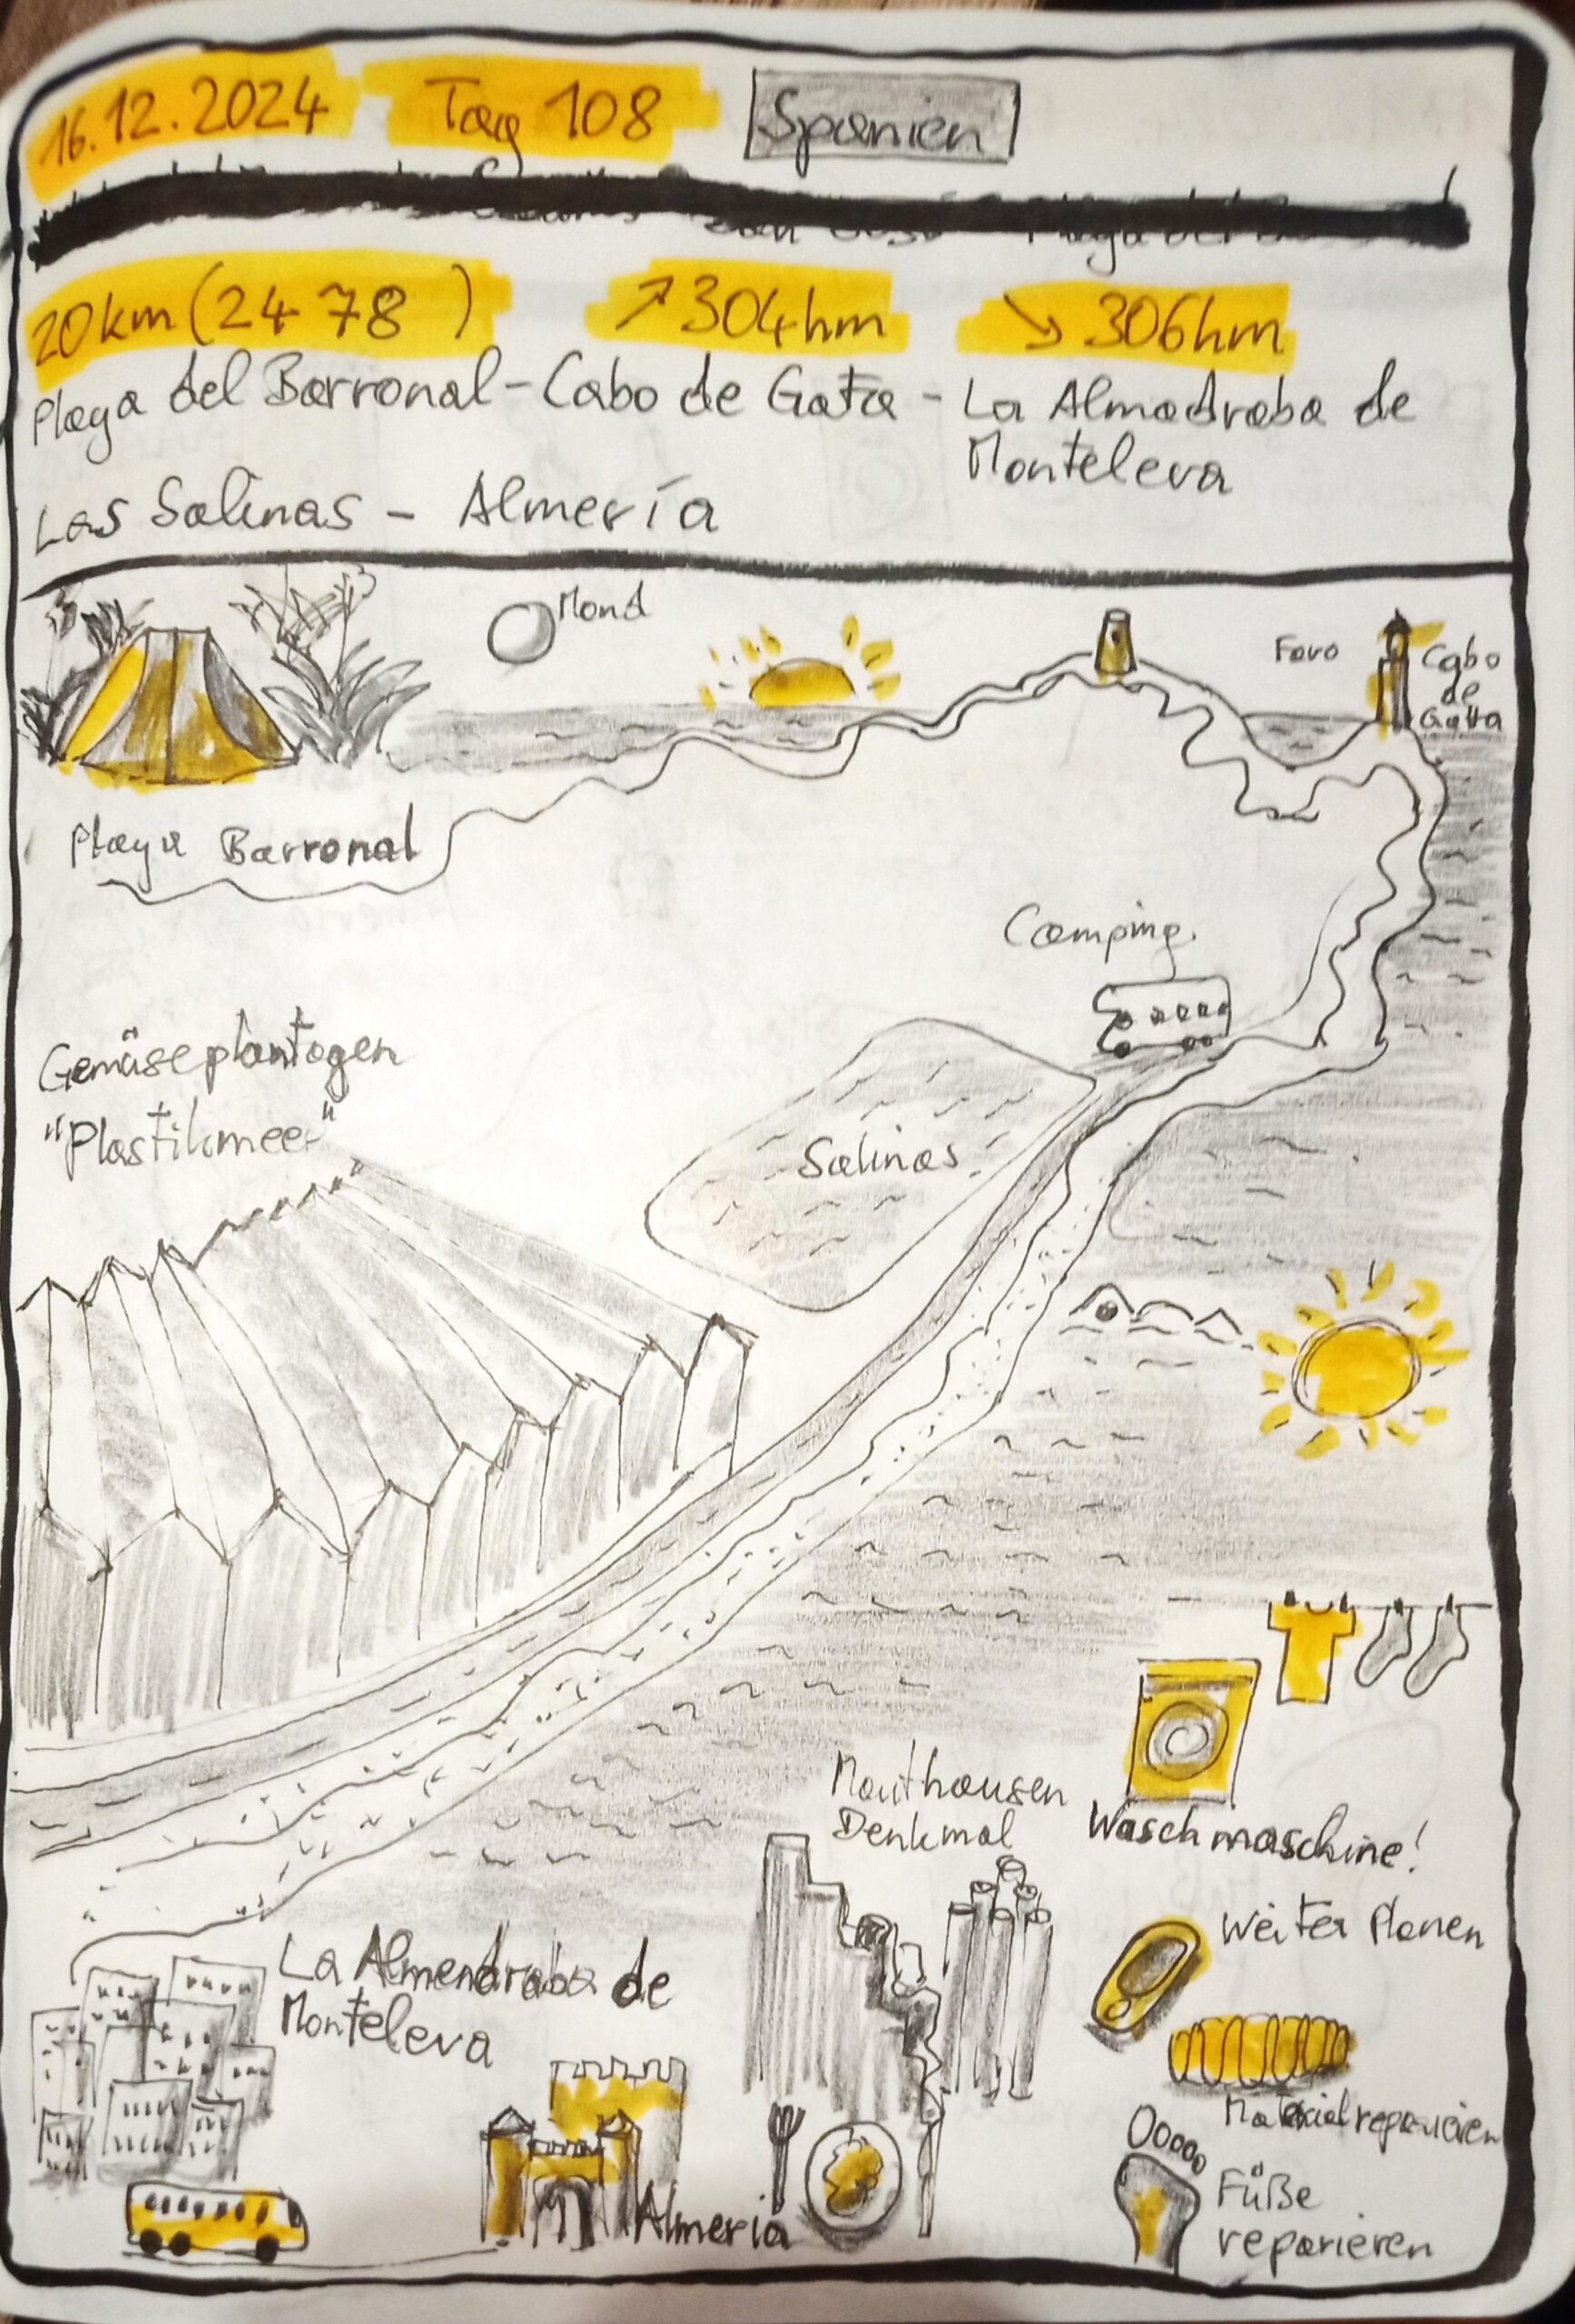 16.12.2024 Tag 108 Spanien
20km (2478) ↗304hm ↘306hm
Playa del Barronal - Cabo de Gata - La Almadraba de
Monteleva
Las Salinas - Almería
Mond
Faro
Cabo
de
Gatta
Playa Barronal
Camping
Gemüseplantagen
"Plastikmeer"
Salinas
Mauthausen
Denkmal
Waschmaschine!
Weiter Planen
La Almendraba de
Monteleva
Material reparieren
Füße
reparieren
Almeria